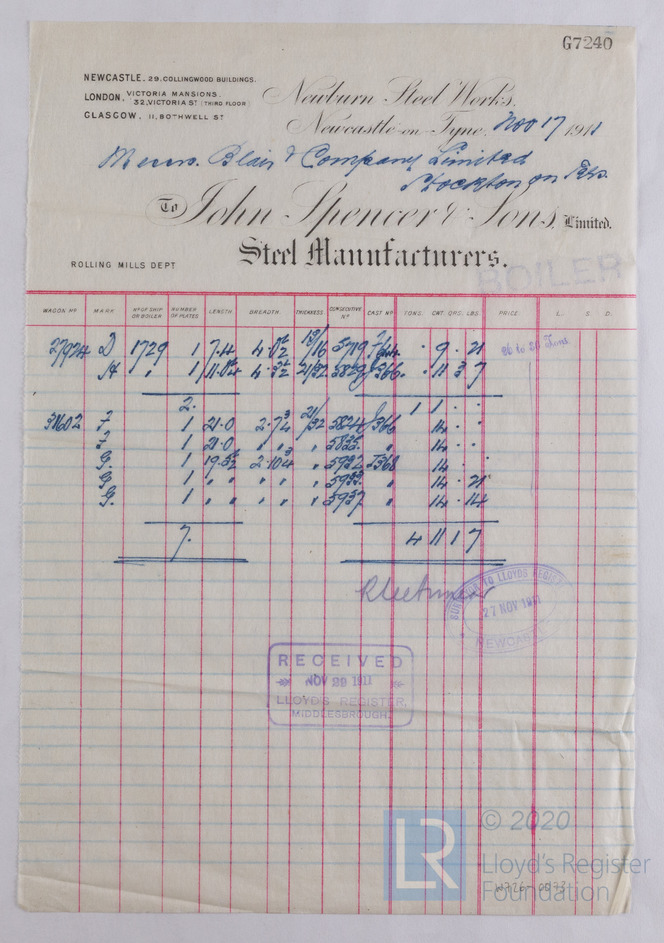 G7240
NEWCASTLE, 29, COLLINGWOOD BUILDINGS.
LONDON, VICTORIA MANSIONS,
32, VICTORIA ST (THIRD FLOOR)
GLASGOW, 11, BOTHWELL ST
Newburn Steel Works,
Newcastle-on-Tyne, Nov 17 1911
Messrs. Blair & Company Limited
Stockton on Tees.
To John Spencer & Sons, Limited.
Steel Manufacturers.
ROLLING MILLS DEPT
BOILER
WAGON No MARK No OF SHIP OR BOILER NUMBER OF PLATES LENGTH BREADTH THICKNESS CONSECUTIVE No CAST No TONS. CWT. QRS. LBS. PRICE L. S. D.
27924 D 1729 1 5719 . 9 . 21
26 to 30 Tons
1 366 . 11 3 7
2. 1 1 . .
31602 1 21.0 366 14 . .
1 21.0 " " " 14 . .
G. 1 " 5932 14 . .
G. 1 " " " " " 14 . 21
G. 1 " " " " " 5937 " 14 . 14
7. 4 11 1 7
SURVEYOR TO LLOYDS REGISTER
27 NOV 1911
NEWCASTLE
RECEIVED
NOV 29 1911
LLOYD'S REGISTER,
MIDDLESBROUGH.
LR © 2020
Lloyd's Register
Foundation
W726-0073